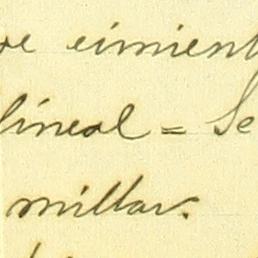 re cimient
lineal = Se
millar.